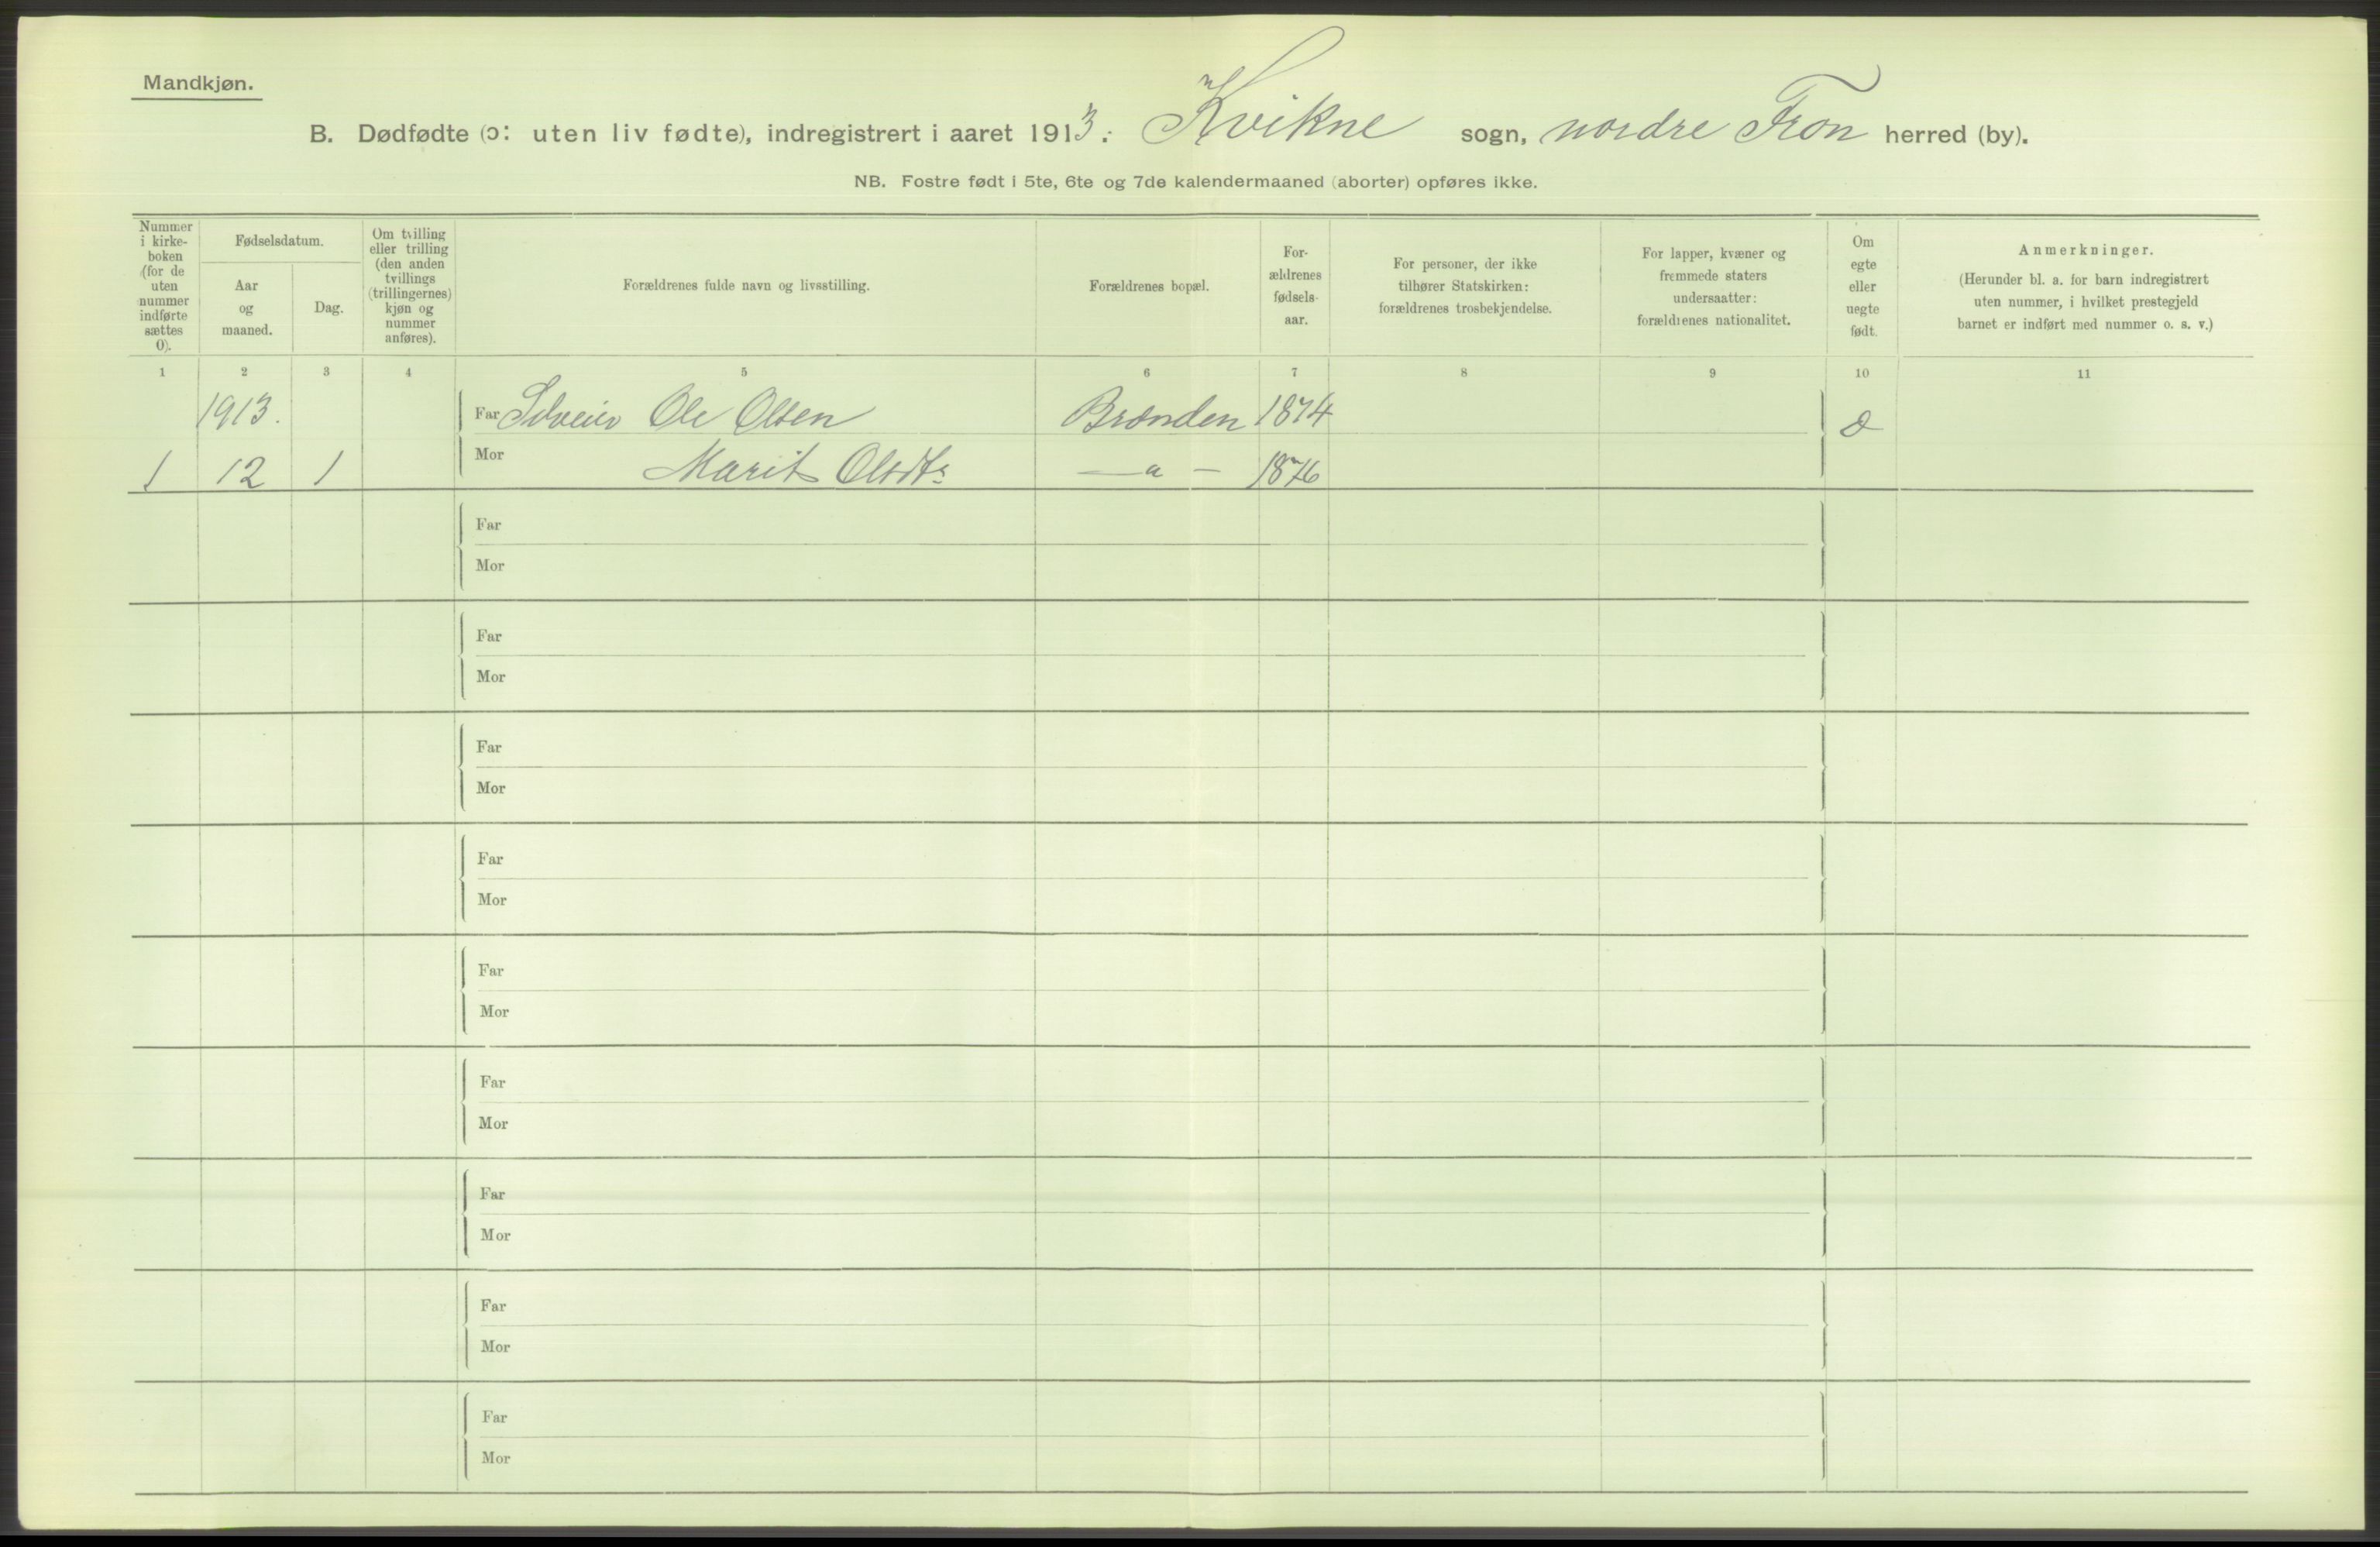 Mandkjøn.
B. Dødfødte (ɔ: uten liv fødte), indregistrert i aaret 1913: Kvikne sogn, nordre Fron herred (by).
NB. Fostre født i 5te, 6te og 7de kalendermaaned (aborter) opføres ikke.
Nummer i kirke-boken (for de uten nummer indførte sættes 0).
Fødselsdatum.
Aar og maaned.
Dag.
Om tvilling eller trilling (den anden tvillings (trillingernes) kjøn og nummer anføres).
Forældrenes fulde navn og livsstilling.
Forældrenes bopæl.
For-ældrenes fødsels-aar.
For personer, der ikke tilhører Statskirken: forældrenes trosbekjendelse.
For lapper, kvæner og fremmede staters undersaatter: forældrenes nationalitet.
Om egte eller uegte født.
Anmerkninger.
(Herunder bl. a. for barn indregistrert uten nummer, i hvilket prestegjeld barnet er indført med nummer o. s. v.)
1 2 3 4 5 6 7 8 9 10 11
1913. Far Selveier Ole Olsen Brænden 1874
1 12 1 Mor Marit Olsdtr — a — 1876
Far
Mor
Far
Mor
Far
Mor
Far
Mor
Far
Mor
Far
Mor
Far
Mor
Far
Mor
Far
Mor